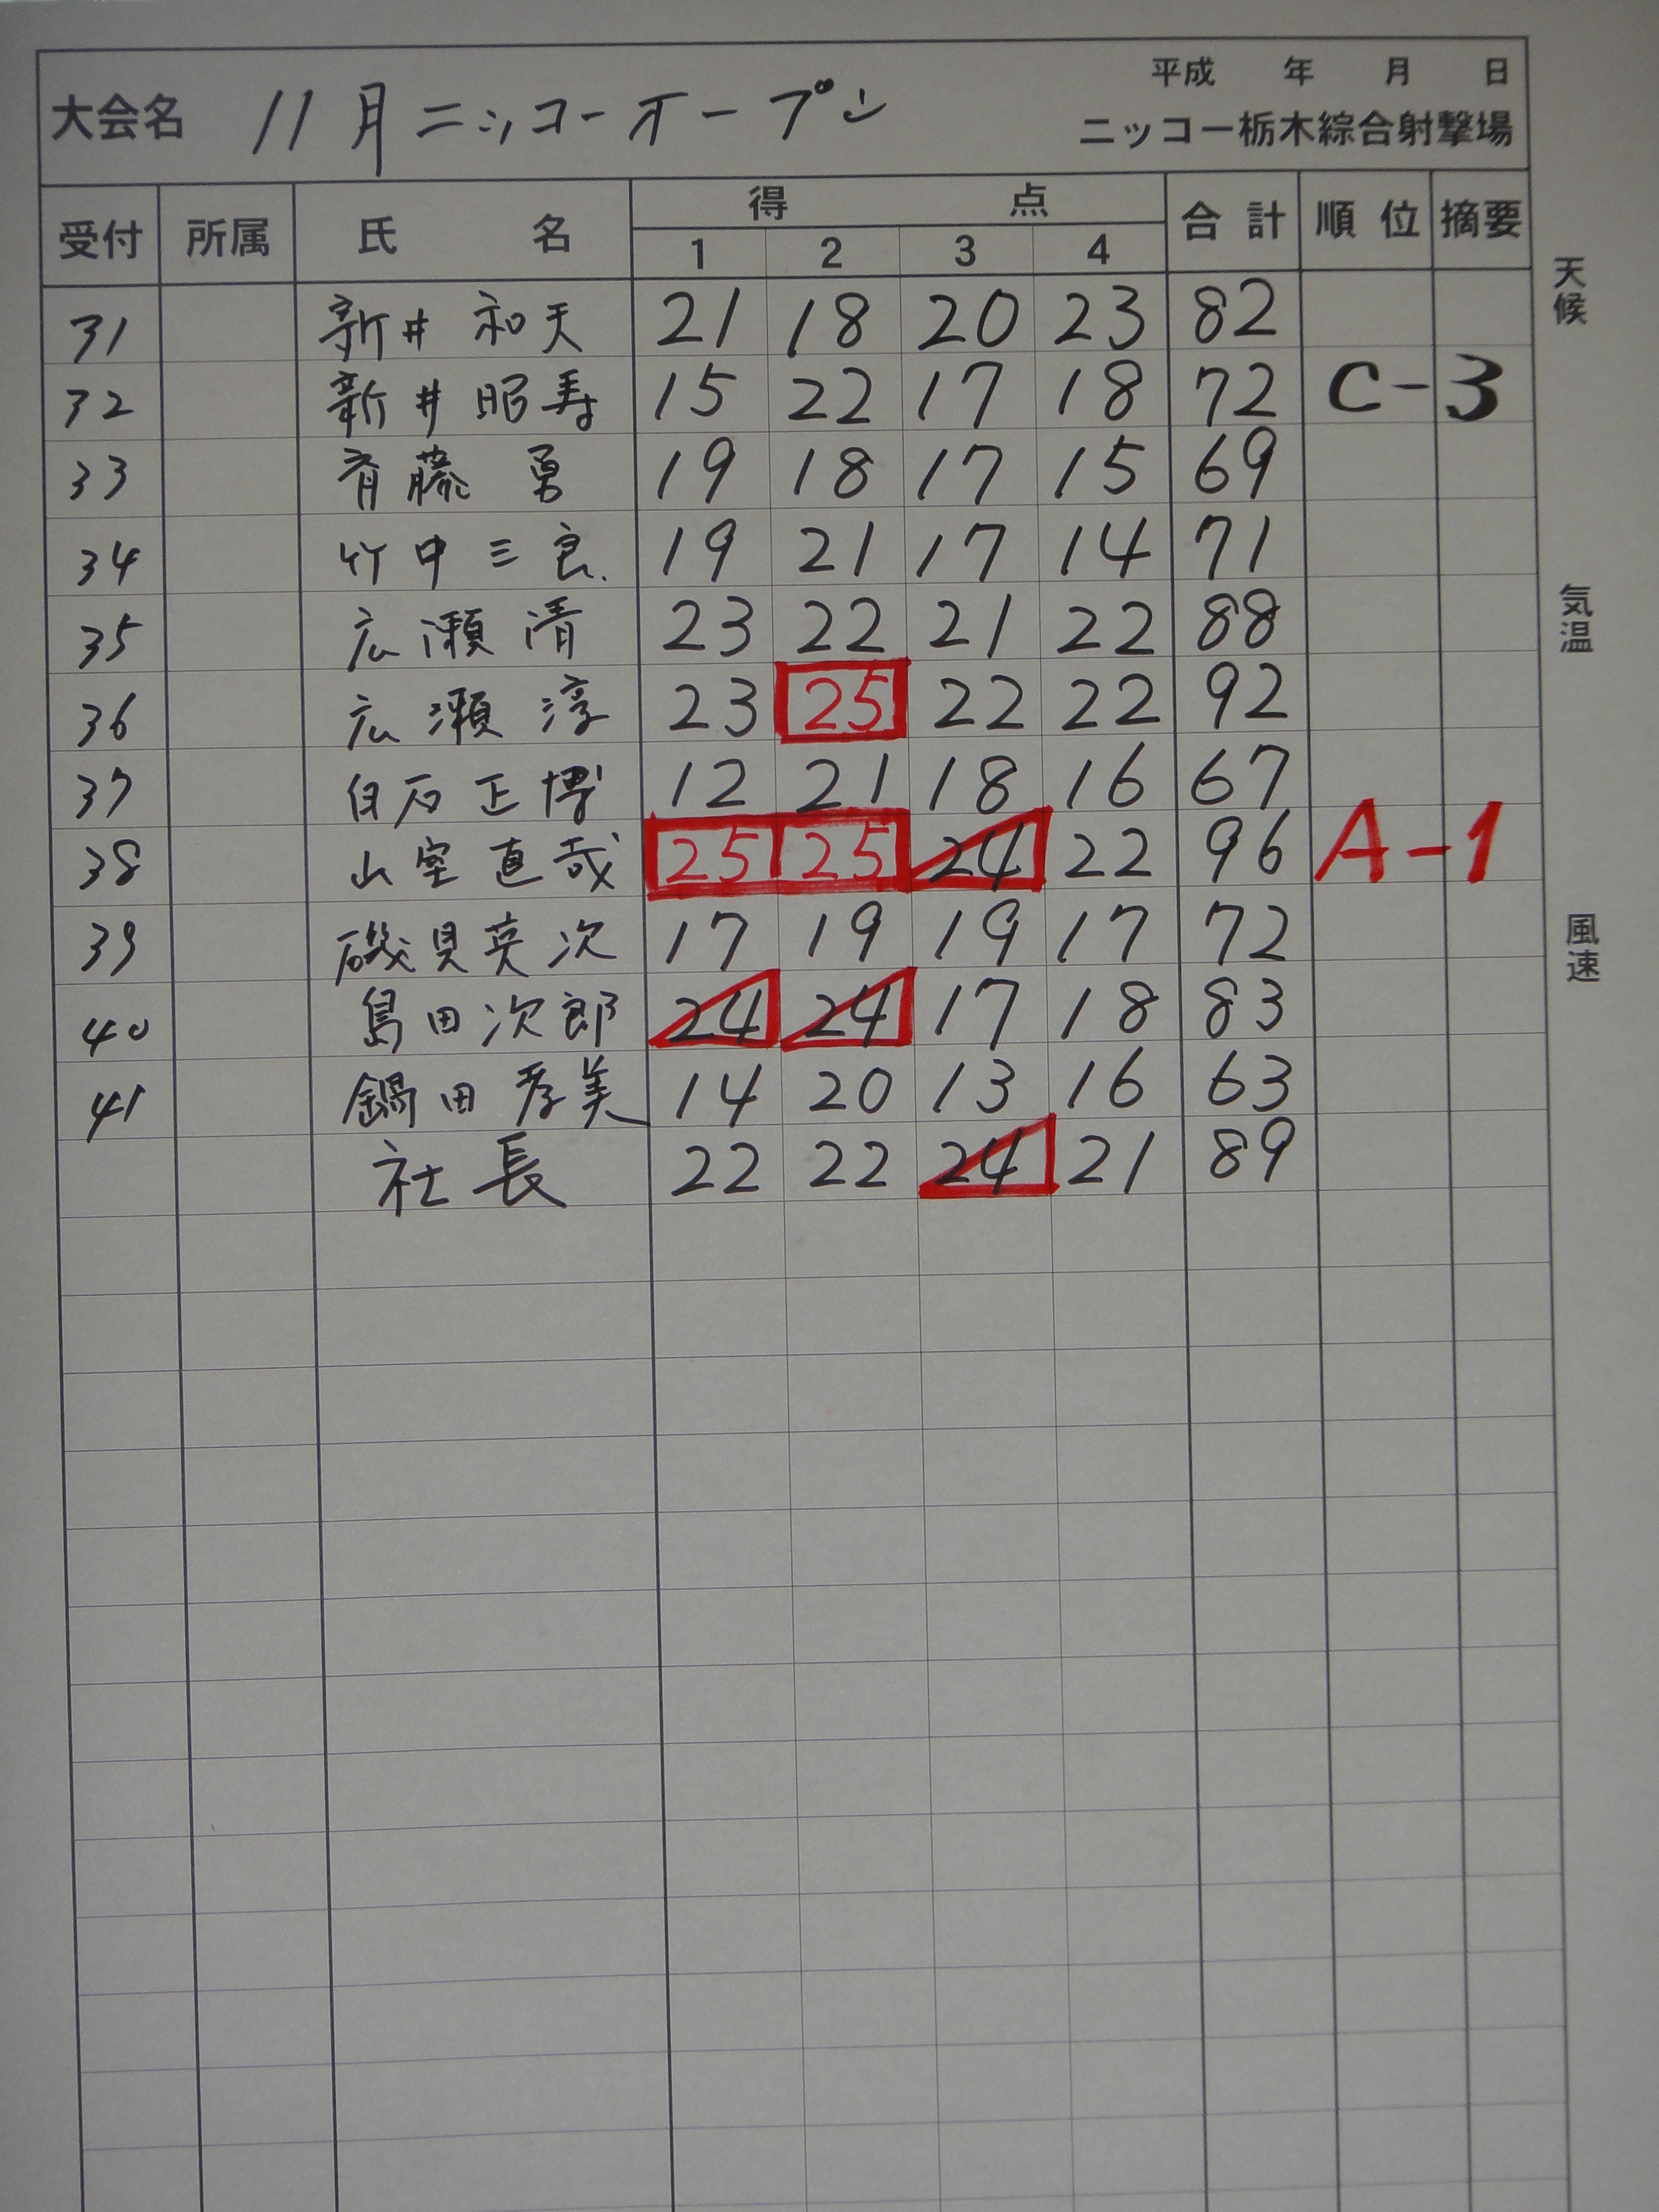 平成 年 月 日
大会名 11月ニッコーオープン ニッコー栃木綜合射撃場
受付 所属 氏名 得点 合計 順位 摘要
1 2 3 4
31 新井和夭 21 18 20 23 82
32 新井昭寿 15 22 17 18 72 C-3
33 斉藤勇 19 18 17 15 69
34 竹中三良 19 21 17 14 71
35 広瀬清 23 22 21 22 88
36 広瀬淳 23 25 22 22 92
37 白石正博 12 21 18 16 67
38 山室直哉 25 25 24 22 96 A-1
39 磯貝英次 17 19 19 17 72
40 島田次郎 24 24 17 18 83
41 鍋田孝美 14 20 13 16 63
社長 22 22 24 21 89
天候
気温
風速